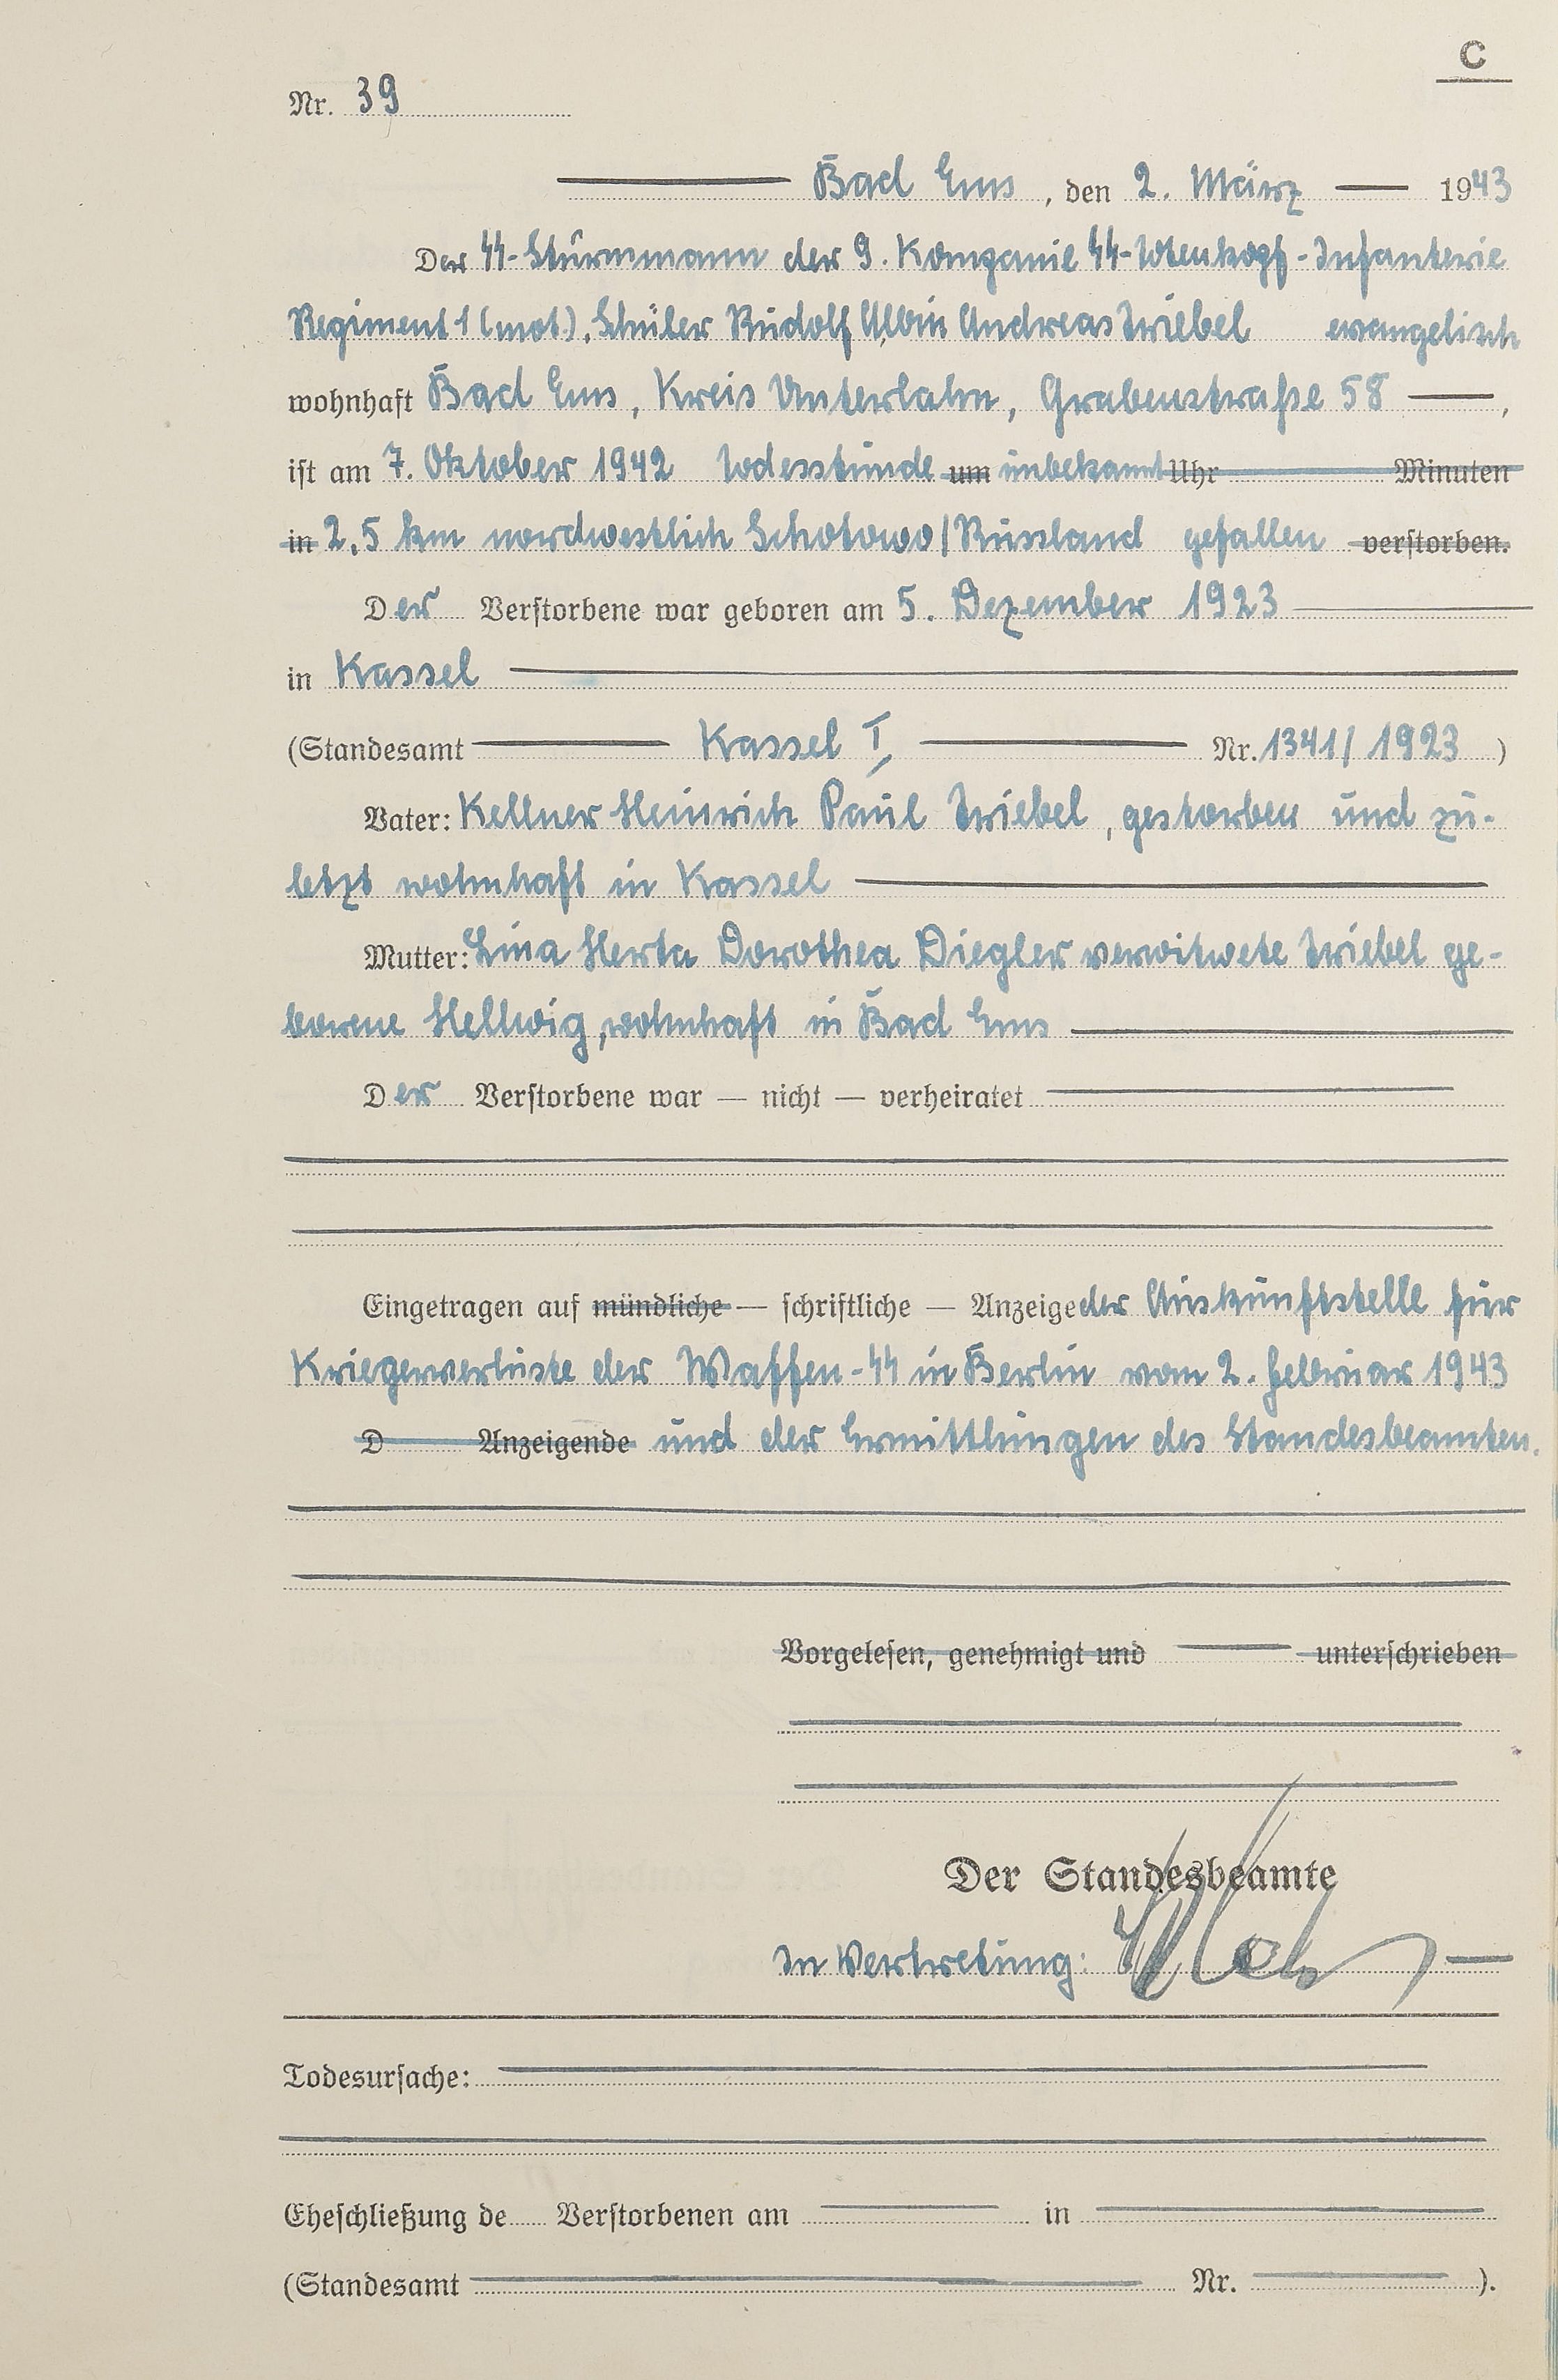 C
Nr. 39
Bad Ems, den 2. März 1943
Der SS-Sturmmann der 9. Kompanie SS-Totenkopf-Infanterie
Regiment 1 (mot.), Schüler Rudolf Albin Andreas Triebel evangelisch
wohnhaft Bad Ems, Kreis Unterlahn, Grabenstraße 58,
ist am 7. Oktober 1942 Todesstunde um unbekannt Uhr Minuten
in 2,5 km nordwestlich Schotowo/Russland gefallen verstorben.
Der Verstorbene war geboren am 5. Dezember 1923
in Kassel
(Standesamt Kassel I, Nr. 1341/1923)
Vater: Kellner Heinrich Paul Triebel, gestorben und zu-
letzt wohnhaft in Kassel
Mutter: Lina Herta Dorothea Diegler verwitwete Triebel ge-
borene Hellwig, wohnhaft in Bad Ems
Der Verstorbene war — nicht — verheiratet
Eingetragen auf mündliche — schriftliche — Anzeige der Auskunftstelle für
Kriegerverluste der Waffen-SS in Berlin vom 2. Februar 1943
D Anzeigende und der Ermittlungen des Standesbeamten.
Vorgelesen, genehmigt und unterschrieben
Der Standesbeamte
In Vertretung:
Todesursache:
Eheschließung de Verstorbenen am in
(Standesamt Nr. ).